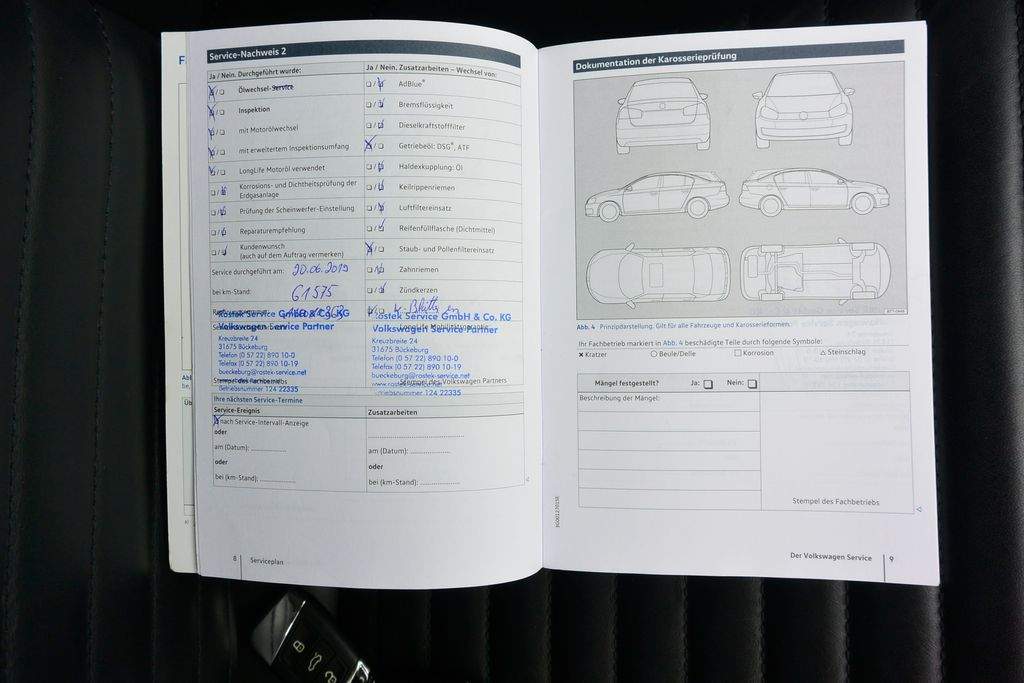 F
Service-Nachweis 2
Ja / Nein. Durchgeführt wurde:
Ölwechsel-Service
Inspektion
mit Motorölwechsel
mit erweitertem Inspektionsumfang
LongLife Motoröl verwendet
Korrosions- und Dichtheitsprüfung der
Erdgasanlage
Prüfung der Scheinwerfer-Einstellung
Reparaturempfehlung
Kundenwunsch
(auch auf dem Auftrag vermerken)
Service durchgeführt am: 20.06.2019
bei km-Stand: 61575
Ja / Nein. Zusatzarbeiten – Wechsel von:
AdBlue®
Bremsflüssigkeit
Dieselkraftstofffilter
Getriebeöl: DSG®, ATF
Haldexkupplung: Öl
Keilrippenriemen
Luftfiltereinsatz
Reifenfüllflasche (Dichtmittel)
Staub- und Pollenfiltereinsatz
Zahnriemen
Zündkerzen
Rostek Service GmbH & Co. KG
Volkswagen Service Partner
Kreuzbreite 24
31675 Bückeburg
Telefon (0 57 22) 890 10-0
Telefax (0 57 22) 890 10-19
bueckeburg@rostek-service.net
Betriebsnummer 124 22335
Rostek Service GmbH & Co. KG
Volkswagen Service Partner
Kreuzbreite 24
31675 Bückeburg
Telefon (0 57 22) 890 10-0
Telefax (0 57 22) 890 10-19
bueckeburg@rostek-service.net
www.rostek-service.net
Stempel des Volkswagen Partners
Betriebsnummer 124 22335
Ihre nächsten Service-Termine
Service-Ereignis
nach Service-Intervall-Anzeige
oder
am (Datum):
oder
bei (km-Stand):
Zusatzarbeiten
am (Datum):
oder
bei (km-Stand):
8 Serviceplan
Dokumentation der Karosserieprüfung
Abb. 4 Prinzipdarstellung. Gilt für alle Fahrzeuge und Karosserieformen.
Ihr Fachbetrieb markiert in Abb. 4 beschädigte Teile durch folgende Symbole:
× Kratzer ○ Beule/Delle □ Korrosion △ Steinschlag
Mängel festgestellt? Ja: Nein:
Beschreibung der Mängel:
Stempel des Fachbetriebs
Der Volkswagen Service 9